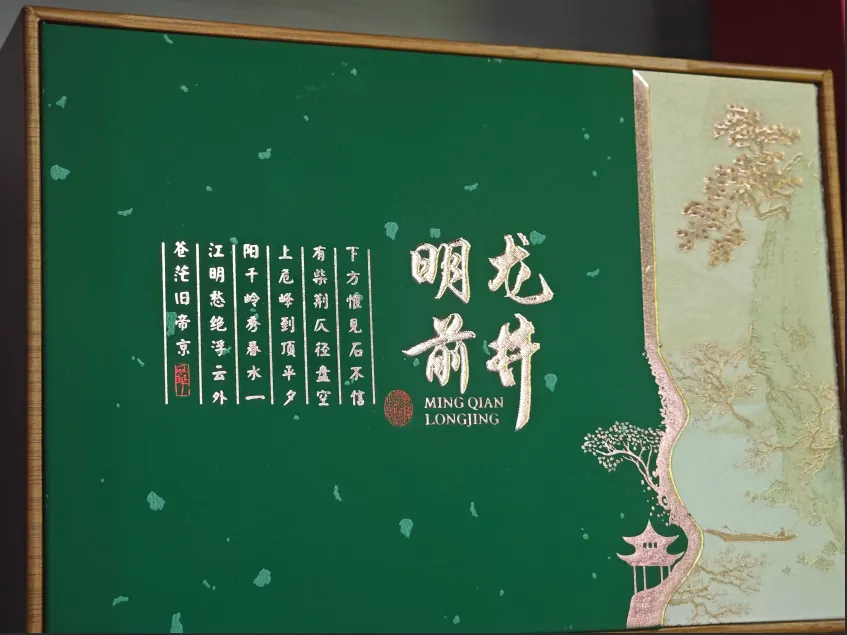 明前
龙井
MING QIAN
LONGJING
下方惟见石不信
有柴荆仄径盘空
上危峰到顶平夕
阳千岭秀春水一
江明愁绝浮云外
苍茫旧帝京